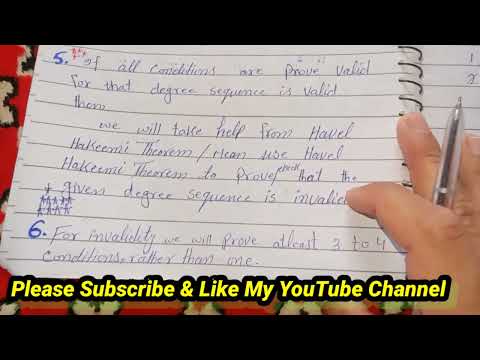 5. If all conditions are prove valid
for that degree sequence is valid
then
we will take help from Havel
Hakeemi Theorem / Mean use Havel
Hakeemi Theorem to Prove/check that the
given degree sequence is invalid
6. For invalidity we will prove atleast 3 to 4
conditions rather than one.
Please Subscribe & Like My YouTube Channel